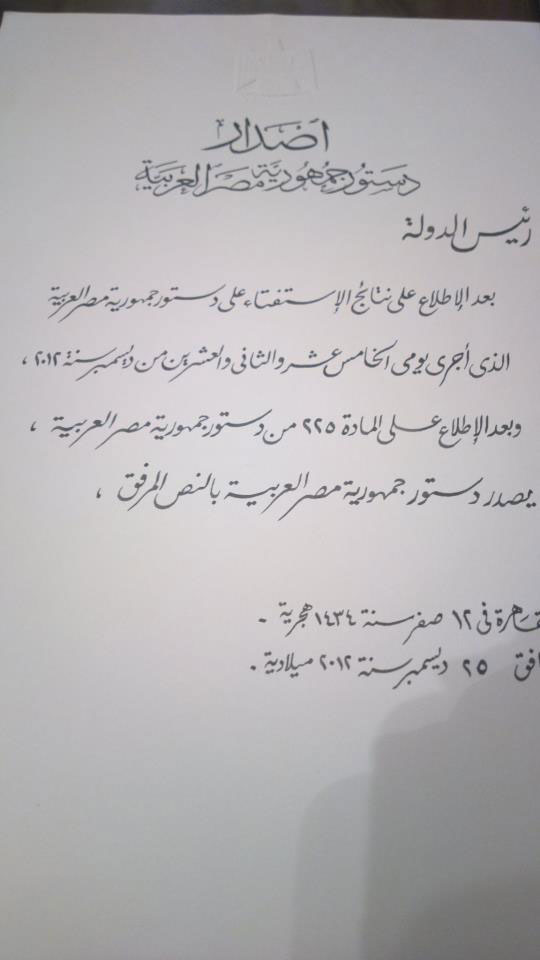 اصدار
دستور جمهورية مصر العربية
رئيس الدولة
بعد الإطلاع على نتائج الإستفتاء على دستور جمهورية مصر العربية
الذى أجرى يومى الخامس عشر والثانى والعشرين من ديسمبر سنة ٢٠١٢ ،
وبعد الإطلاع على المادة ٢٢٥ من دستور جمهورية مصر العربية ،
يصدر دستور جمهورية مصر العربية بالنص المرفق ،
قاهرة فى ١٢ صفر سنة ١٤٣٤ هجرية .
افق ٢٥ ديسمبر سنة ٢٠١٢ ميلادية .